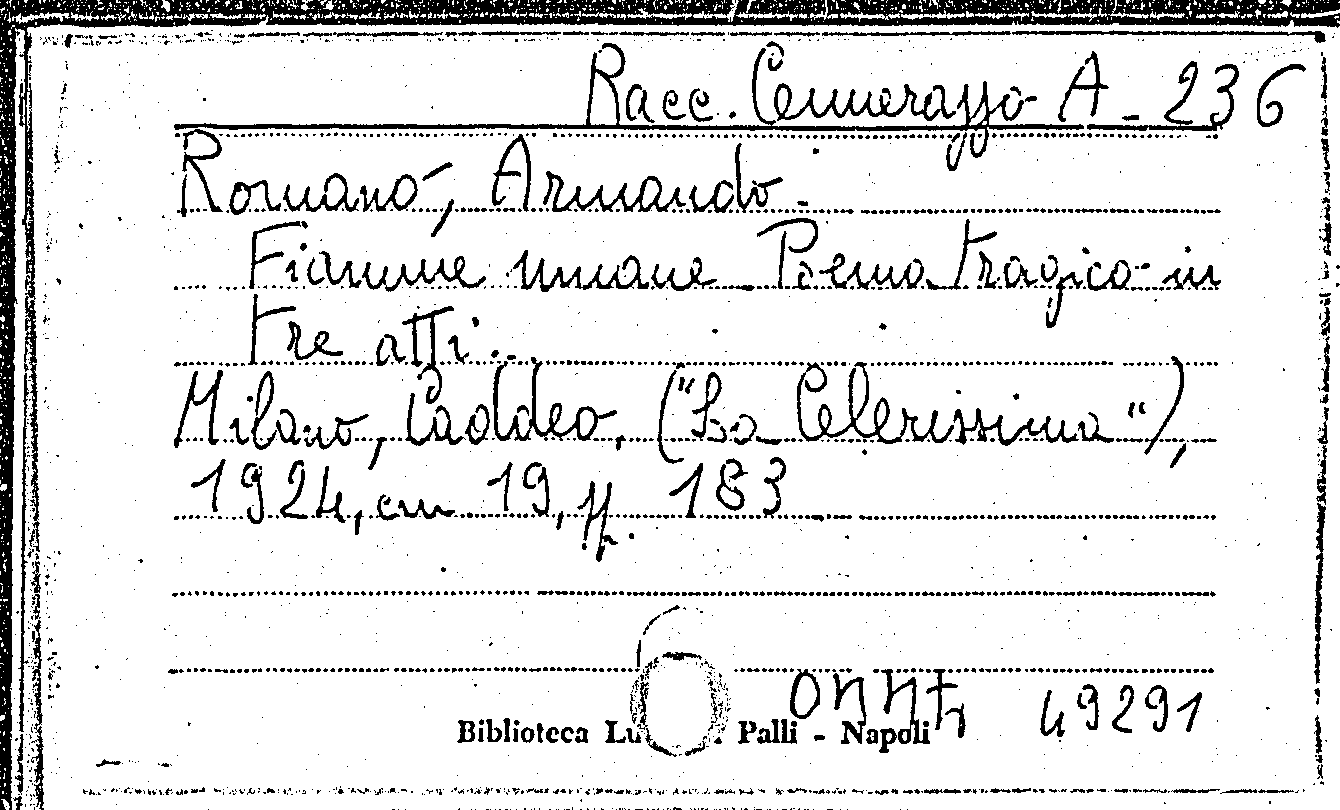 Racc. Cennerazzo A - 236
Romanò, Armando.
Fiamme umane. Poema tragico in
tre atti...
Milano, Caddeo, ("La Celerissima"),
1924, cm 19, pp. 183
49291
Biblioteca Lu Palli - Napoli